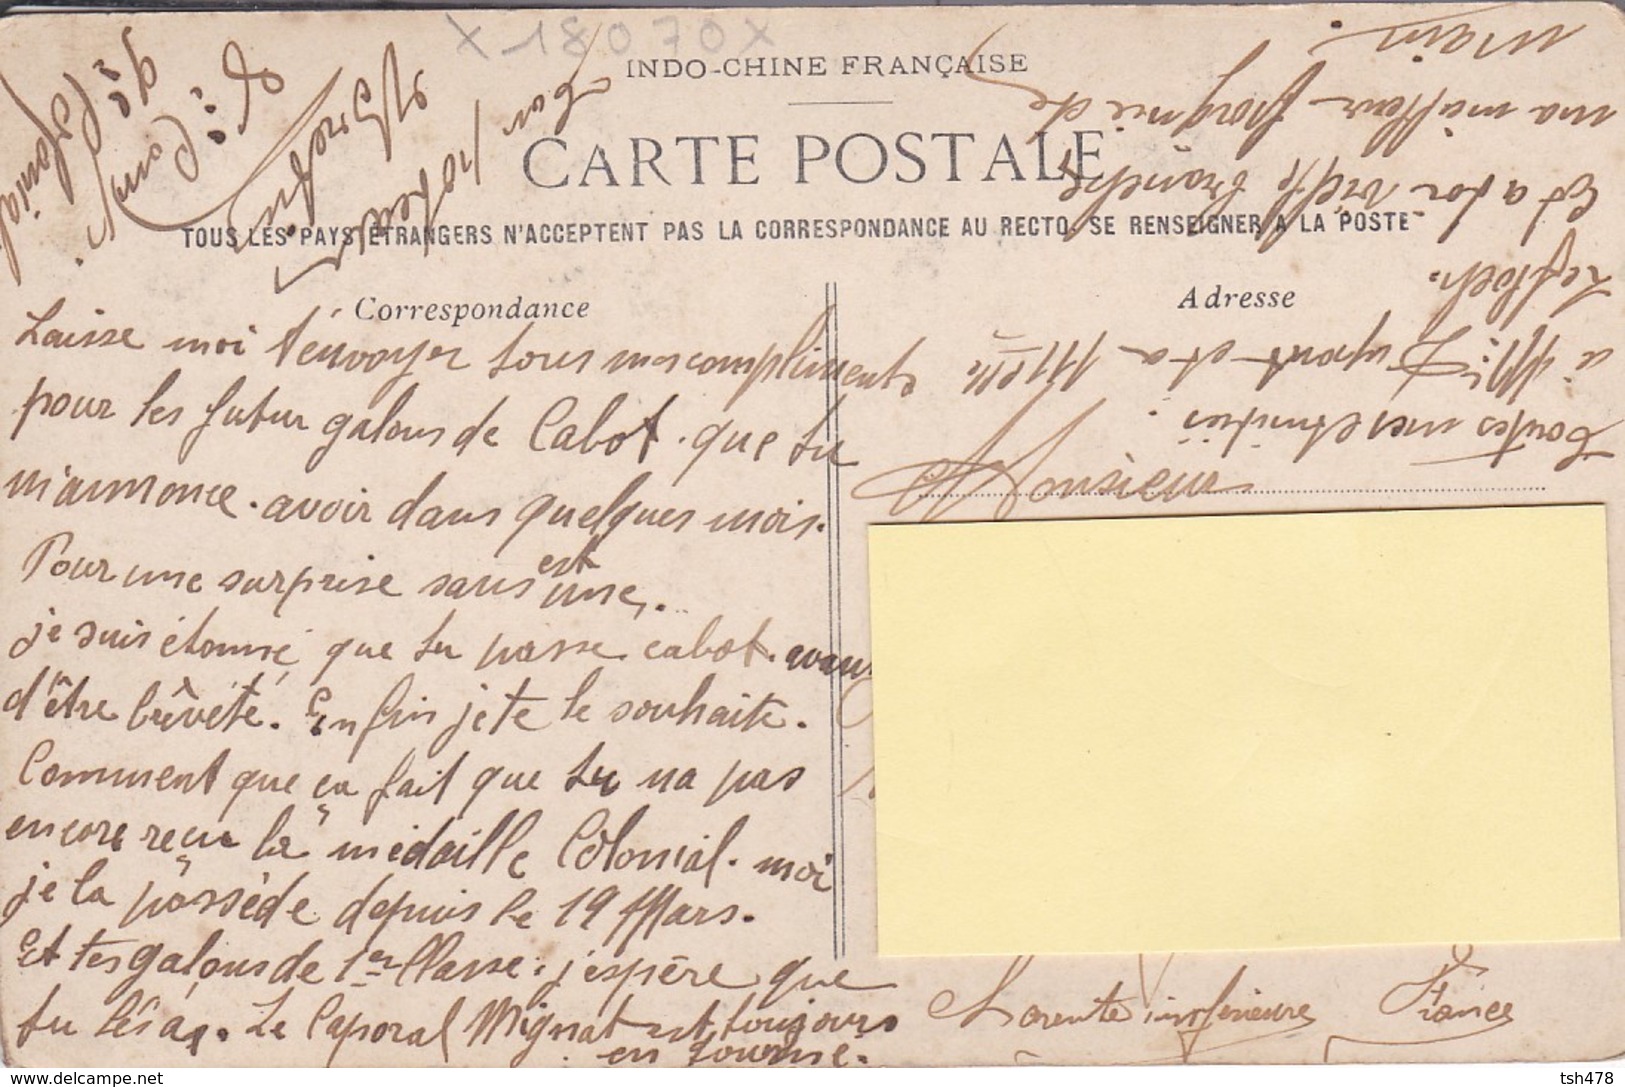 X 18070 X
INDO-CHINE FRANÇAISE
CARTE POSTALE
TOUS LES PAYS ÉTRANGERS N'ACCEPTENT PAS LA CORRESPONDANCE AU RECTO. SE RENSEIGNER A LA POSTE
Correspondance
Adresse
Laisse moi t'envoyer tous mes compliments
pour les futur galons de Cabot. que tu
m'annonce. avoir dans quelques mois.
Pour une surprise sans est une,.
je suis étonné, que tu passe cabot. avant
d'être brêveté. Enfin je te le souhaite.
Comment que ça fait que tu na pas
encore reçu la "médaille Colonial. moi
je la possède depuis le 19 Mars.
Et tes galons de 1er Classe. j'espère que
tu lésa. Le Caporal Mignat est, toujours
en tournée.
Toutes mes amitiés.
à Mr Dupont et a Melle
et a ton vieffe branche
ma meilleur poignié de
main.
ton poteau
Colonial
Monsieur
Charente inférieure
France
tsh478